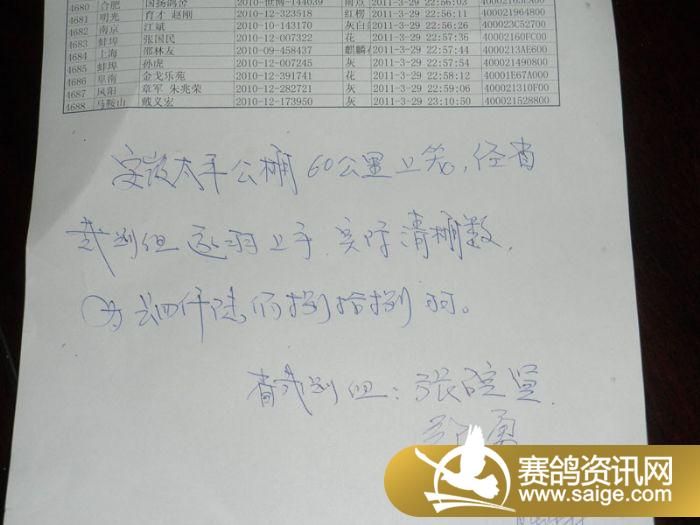 4680 合肥 国扬鸽舍 2010-世博-144039 雨点 2011-3-29 22:56:03
4681 明光 育才 赵刚 2010-12-323518 红楞 2011-3-29 22:56:11 400021964800
4682 南京 江斌 2010-10-143170 灰白 2011-3-29 22:56:26 400023C52700
4683 蚌埠 张国民 2010-12-007322 花 2011-3-29 22:57:36 40002160FC00
4684 上海 邵林友 2010-09-458437 麒麟花 2011-3-29 22:57:44 4000213AE600
4685 蚌埠 孙虎 2010-12-007245 灰 2011-3-29 22:57:54 400021490800
4686 阜南 金戈乐苑 2010-12-391741 花 2011-3-29 22:58:12 40001E67A000
4687 凤阳 章军 朱兆荣 2010-12-282721 灰 2011-3-29 22:59:06 400021310F00
4688 马鞍山 戴义宏 2010-12-173950 灰 2011-3-29 23:10:50 400021528800
安徽太平公棚60公里上笼,经省
裁判组逐羽上手,实际清棚数
为:四仟陆佰捌拾捌羽。
省裁判组:张
勇
赛鸽资讯网
www.saige.com